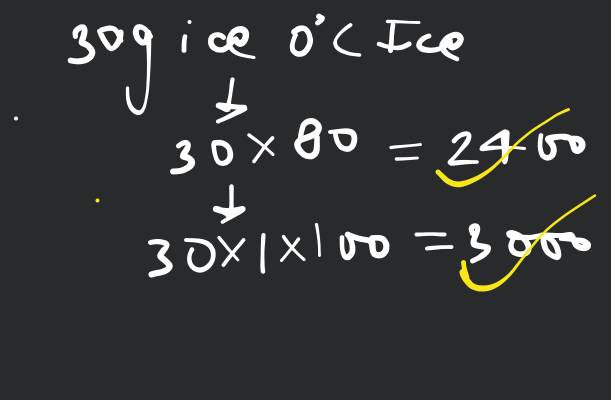 30g ice 0°C Ice
↓
30 × 80 = 2400
↓
30×1×100 = 3000